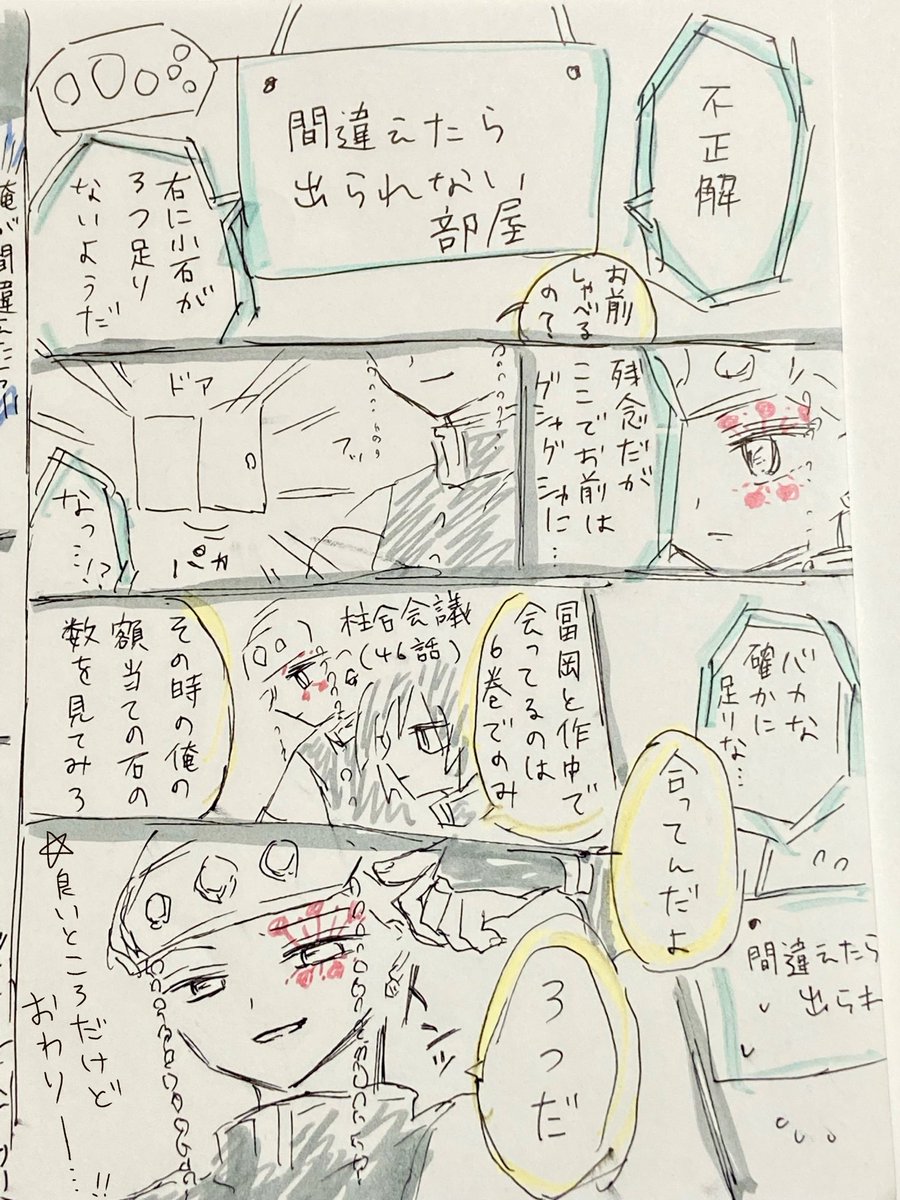 不正解
間違えたら
出られない
部屋
右に小石が
3つ足り
ないようだ
お前
しゃべる
の?
残念だが
ここでお前は
グシャグシャに…
ドア
パカ
なっ…!?
バカな
確かに
足りな…
合ってんだよ
冨岡と作中で
会ってるのは
6巻でのみ
柱合会議
(46話)
その時の俺の
額当ての石の
数を見てみろ
間違えたら
出られ
3つだ
トンッ
☆良いところだけど
おわりー…!!
俺が間違えた